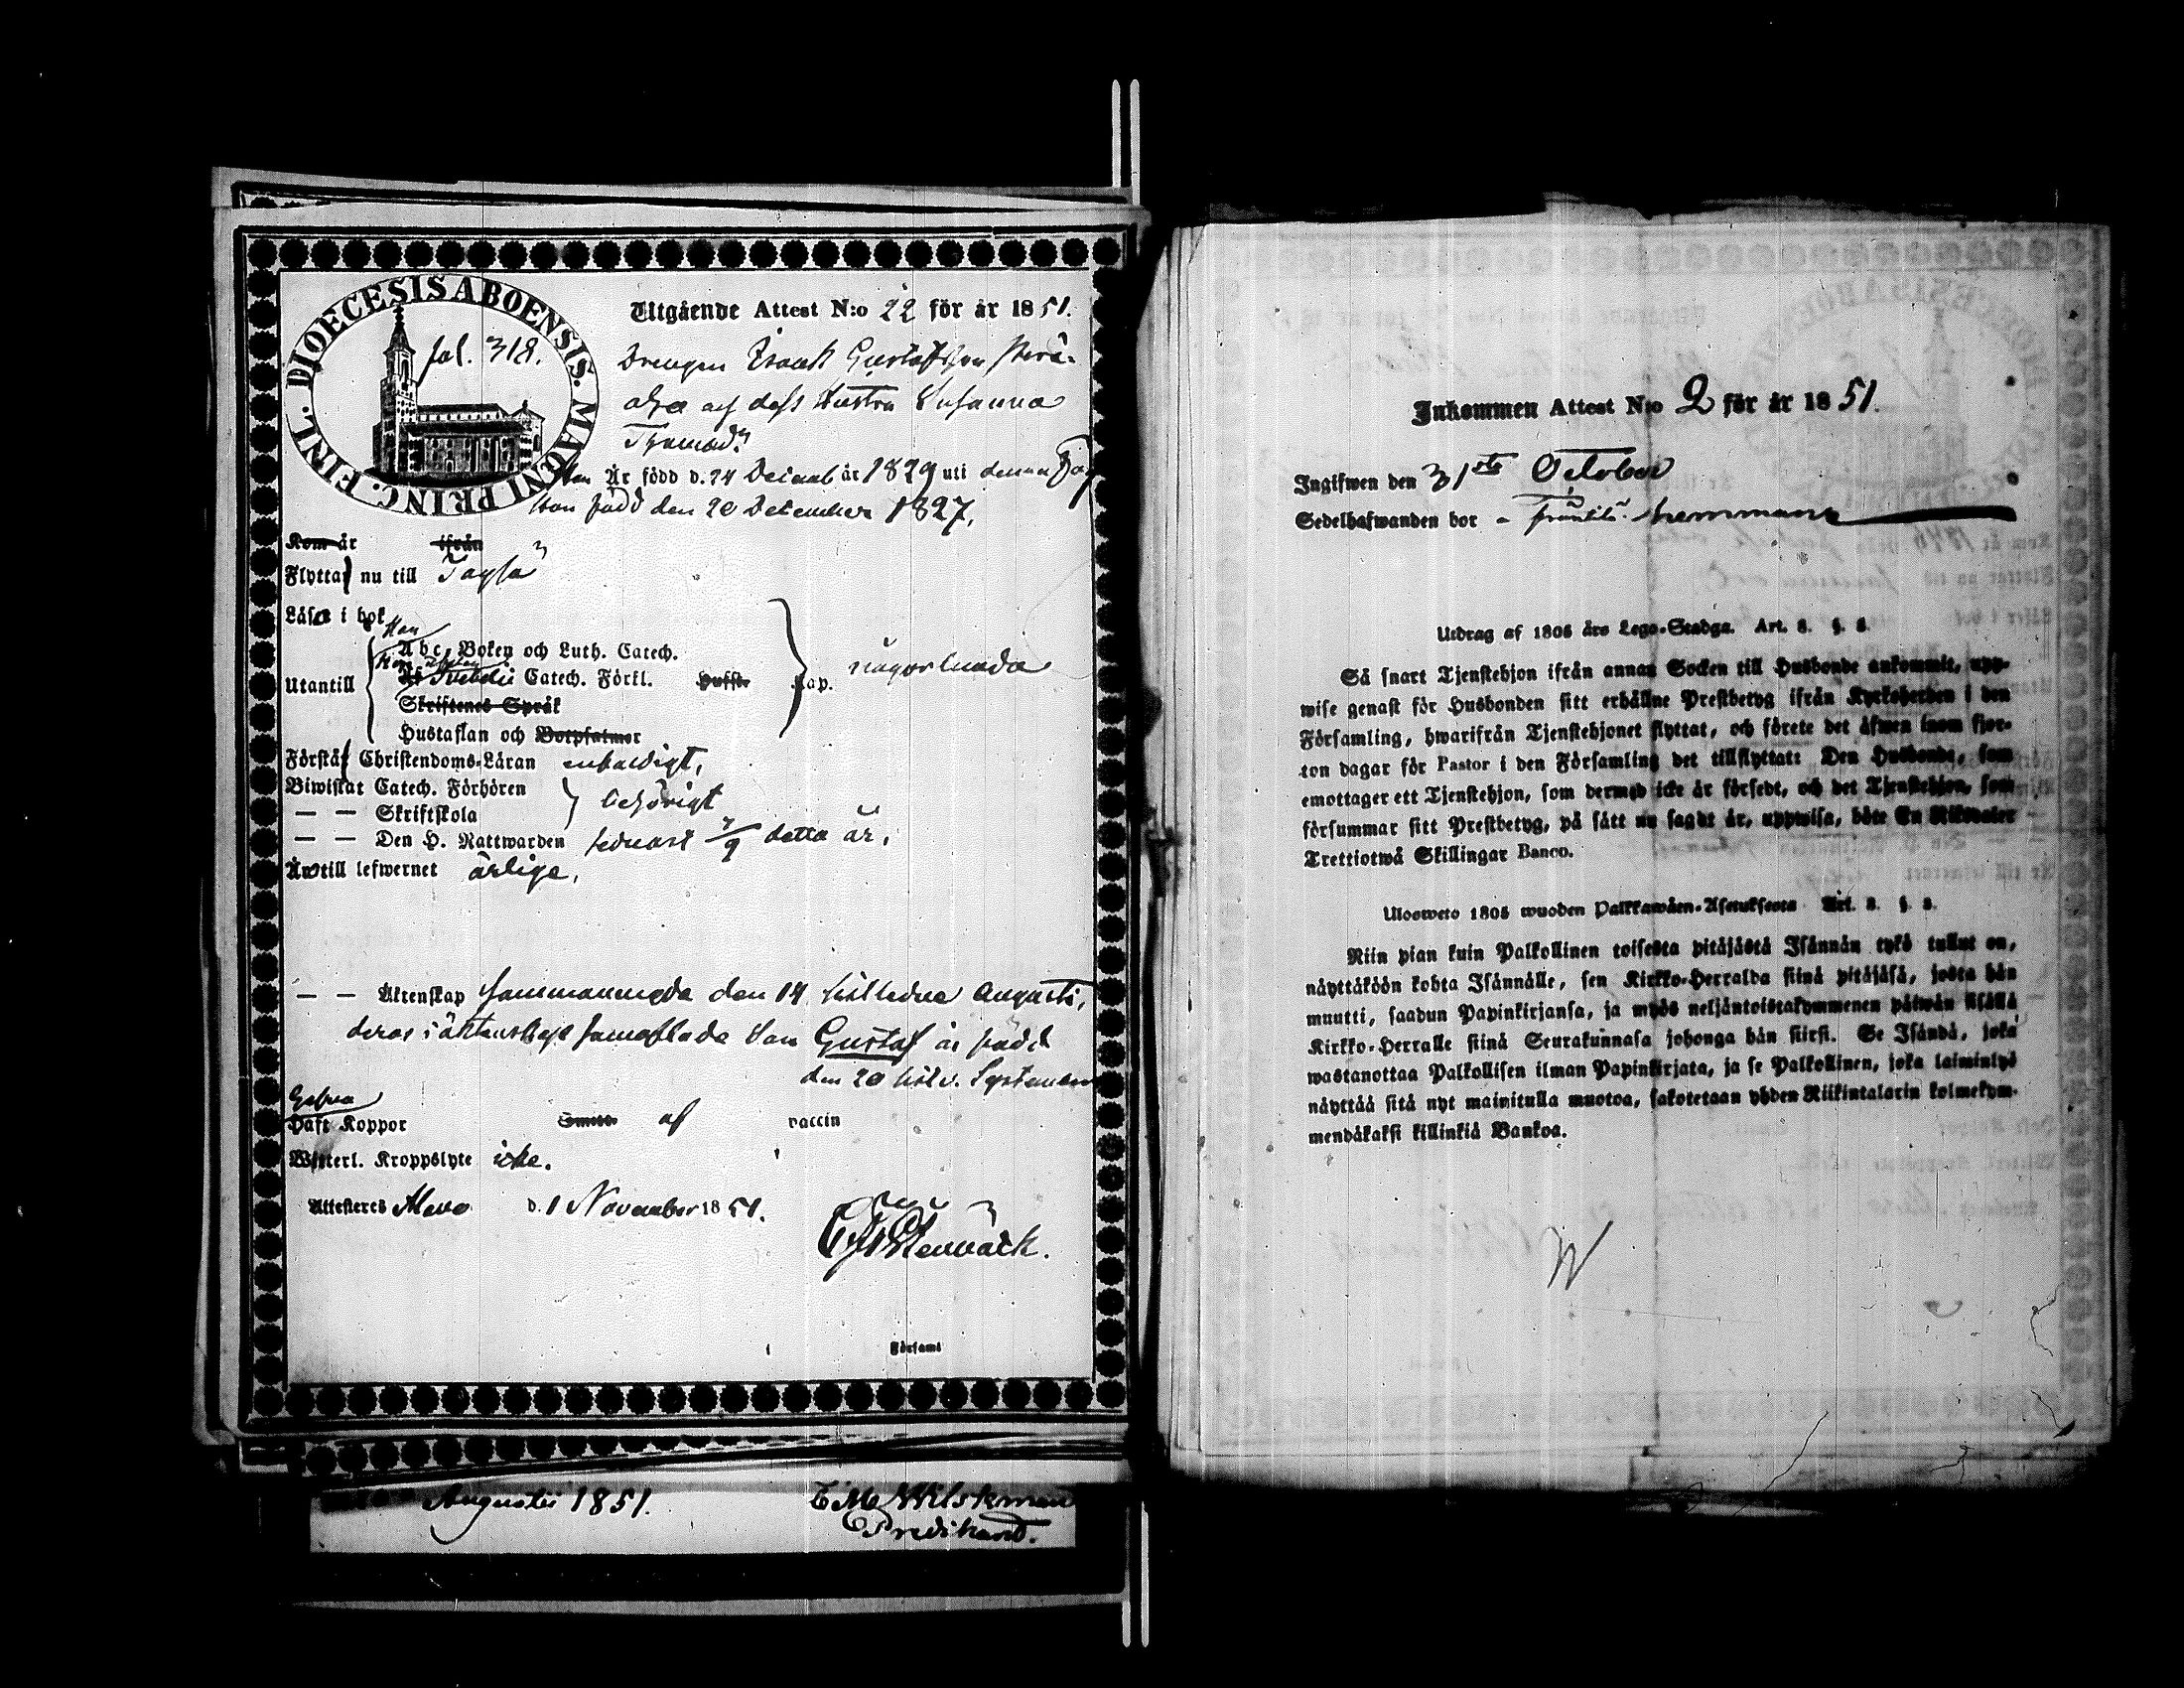 DIOECESIS ABOENSIS. MAGNI PRINC. FINL.
fol. 318.
Utgående Attest N:o 22 för år 1851.
Drengen Isaak Gustafsson
och dess Hustru Susanna
Thomasd:r
Han Är född d. 24 Decemb år 1829 uti denna
hon född den 20 December 1827.
Kom år ifrån
Flyttar nu till
Läser i bok
Han
Abc-Boken och Luth. Catech.
Svebelii Catech. Förkl. Hufst. Kap. någorlunda
Utantill
Skriftenes Språk
Hustaflan och Botpsalmer
Förstår Christendoms-Läran enfaldigt,
Biwistat Catech. Förhören
— — Skriftskola behörigt
— — Den H. Nattwarden sednast 7/9 detta år,
Äro till lefwernet ärlige,
— — Äktenskap sammanvigde den 14 sistledne Augusti,
deras i äktenskap sammaflade Son Gustaf är född
den 20 sistl. September
Haft Koppor Smitt. af vaccin
Witterl. Kroppslyte icke.
Attesteras d. 1 November 1851.
Församl
Augusti 1851.
Predikant.
Inkommen Attest N:o 2 för år 1851.
Ingifwen den 31ste October
Sedelhafwanden bor - hemman
Utdrag af 1805 års Lego-Stadga. Art. 8. §. 8.
Så snart Tjenstehjon ifrån annan Socken till Husbonde ankommit, upp-
wise genast för Husbonden sitt erhållne Prestbetyg ifrån Kyrkoherden i den
Församling, hwarifrån Tjenstehjonet flyttat, och förete det äfwen inom fjor-
ton dagar för Pastor i den Församling det tillflyttat: Den Husbonde, som
emottager ett Tjenstehjon, som dermed icke är försedt, och det Tjenstehjon, som
försummar sitt Prestbetyg, på sätt nu sagdt är, uppwisa, böte En Riksdaler
Trettiotwå Skillingar Banco.
Ulosweto 1805 wuoden Palkkawäen-Asetuksesta Art. 8. §. 8.
Niin pian kuin Palkollinen toisesta pitäjästä Isännän tykö tullut on,
näyttäköön kohta Isännälle, sen Kirkko-Herralda siinä pitäjäsä, josta hän
muutti, saadun Papinkirjansa, ja myös neljäntoistakymmenen päiwän sisällä
Kirkko-Herralle siinä Seurakunnasa johonga hän siirsi. Se Isändä, joka
wastanottaa Palkollisen ilman Papinkirjata, ja se Palkollinen, joka laiminlyö
näyttää sitä nyt mainitulla muotoa, sakotetaan yhden Riikintalarin kolmekym-
mendäkaksi killinkiä Bankoa.